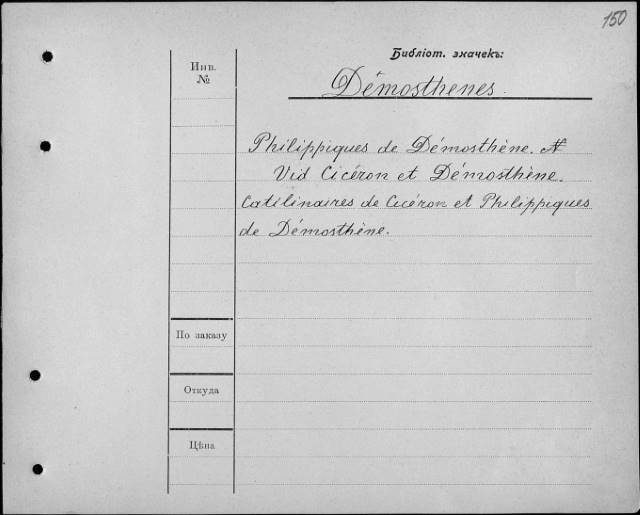 150
Библіот. значекъ:
Инв.
№
Démosthenes.
Philippiques de Démosthène.
Vid Cicéron et Démosthène.
Catilinaires de Cicéron et Philippiques
de Démosthène.
По заказу
Откуда
Цѣна